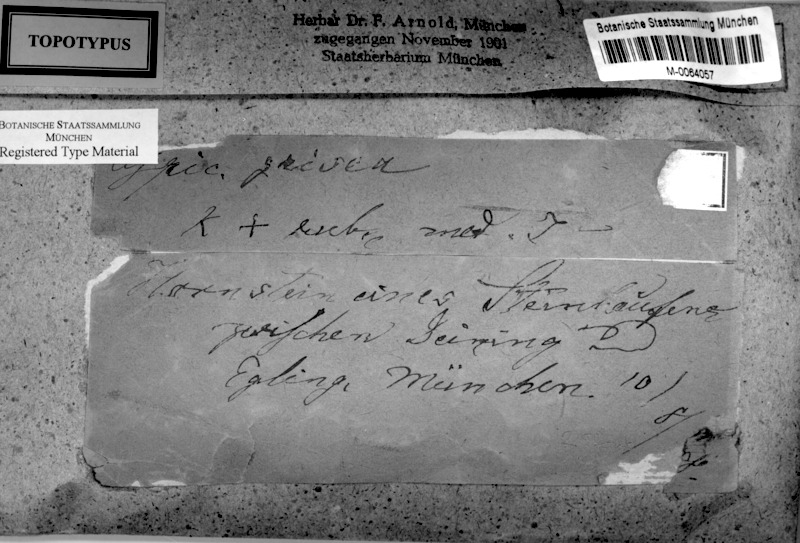 TOPOTYPUS
Herbar Dr. F. Arnold, München
zugegangen November 1901
Staatsherbarium München
Botanische Staatssammlung München
M-0064057
BOTANISCHE STAATSSAMMLUNG
MÜNCHEN
Registered Type Material
K + med. J —
Hornstein eines Steinhaufens
zwischen Deining
Egling, München. 10/
8/